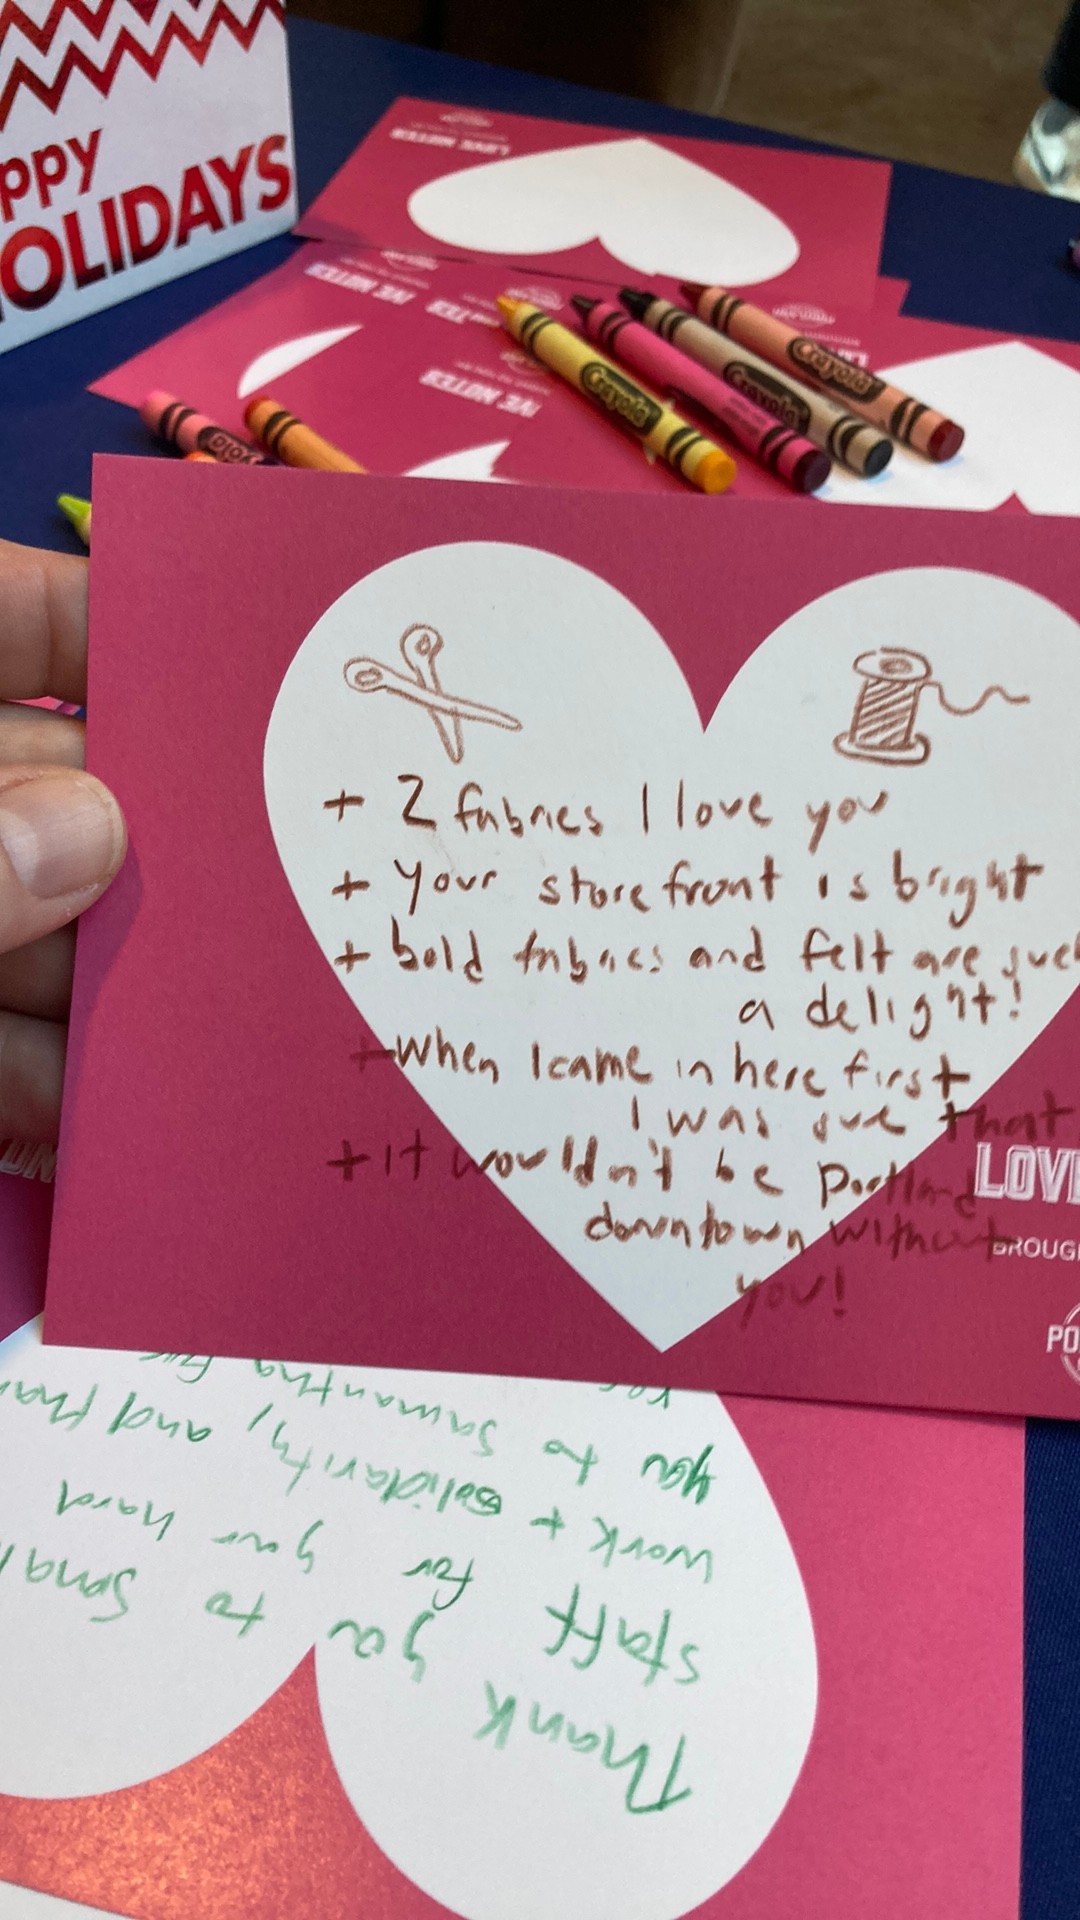 PPY
OLIDAYS
LOVE NOTES
Crayola
Crayola
Crayola
+ 2 fabrics I love you
+ Your storefront is bright
+ bold fabrics and felt are such
a delight!
+ When I came in here first
I was sure that
+ it wouldn't be Portland
downtown without
you!
LOVE
BROUG
PO
Thank you to
staff for your hard
work + solidarity, and
you to Samantha for